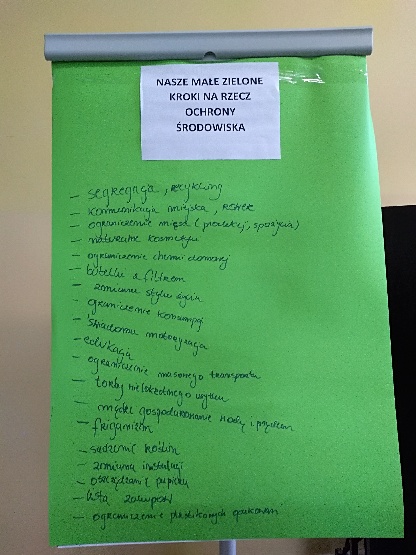 NASZE MAŁE ZIELONE
KROKI NA RZECZ
OCHRONY
ŚRODOWISKA
– segregacja, recykling
– komunikacja miejska, rower
– ograniczenie mięsa (produkcji, spożycia)
– naturalne kosmetyki
– ograniczenie chemii domowej
– butelki z filtrem
– zmiana stylu życia
– ograniczenie konsumpcji
– motoryzacja
– edukacja
– ograniczenie masowego transportu
– torby wielokrotnego użytku
– mądre gospodarowanie wodą i prądem
– friganizm
– sadzenie roślin
– zmiana instalacji
– oszczędzanie papieru
– lista zakupów
– ograniczenie plastikowych opakowań